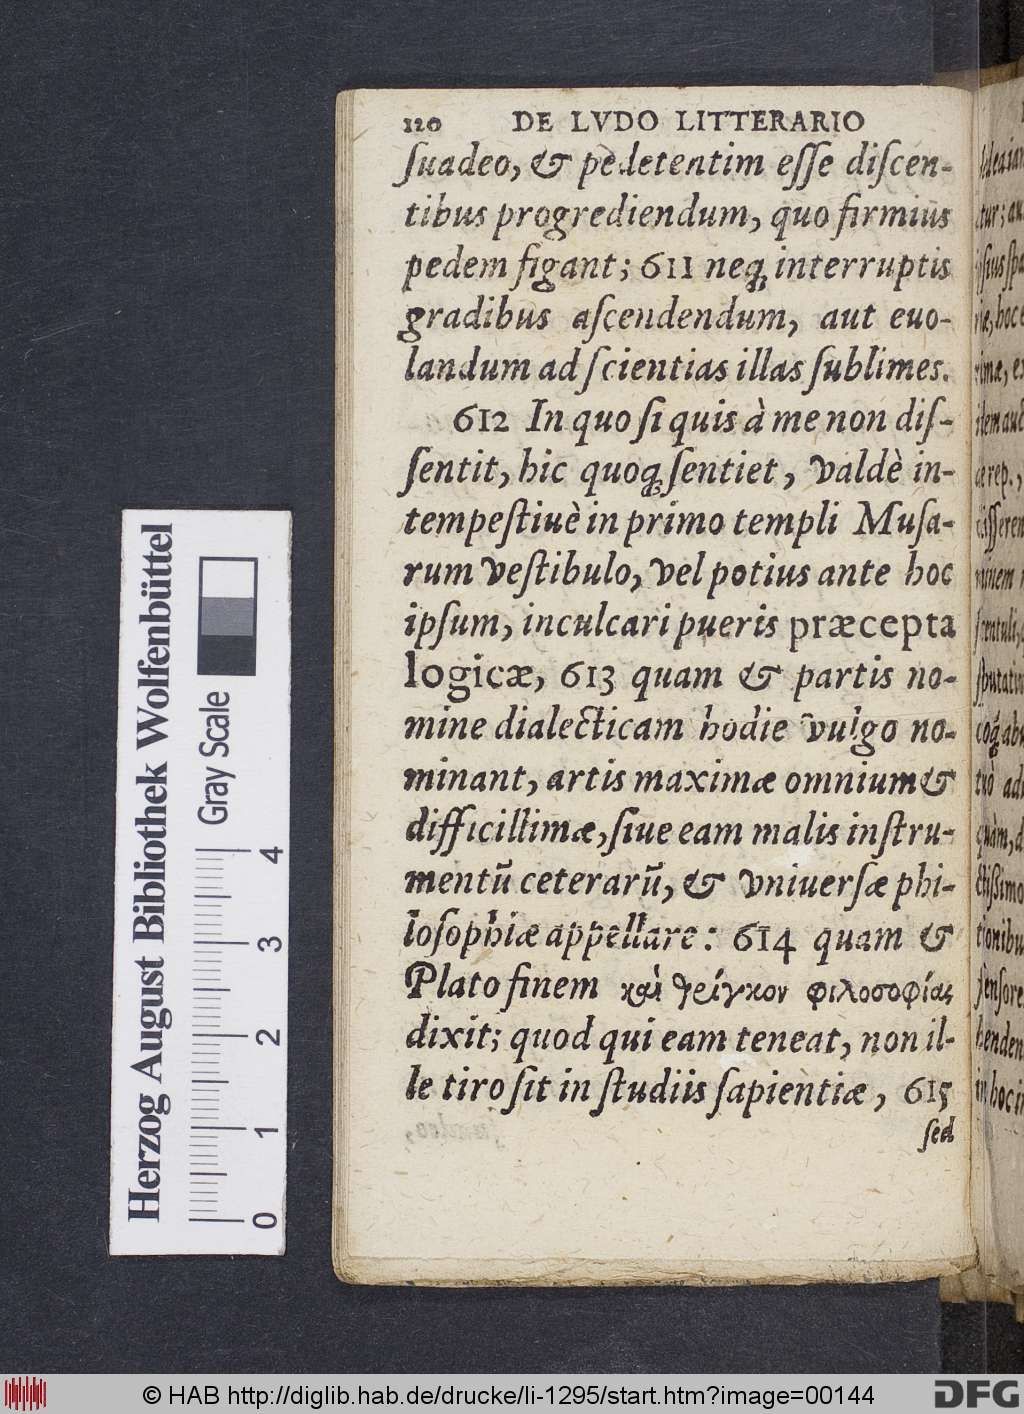 120 DE LVDO LITTERARIO
ſuadeo, & pedetentim eſſe diſcen-
tibus progrediendum, quo firmius
pedem figant; 611 neq; interruptis
gradibus aſcendendum, aut euo-
landum ad ſcientias illas ſublimes.
612 In quo ſi quis à me non diſ-
ſentit, hic quoq; ſentiet, valdè in-
tempeſtiuè in primo templi Muſa-
rum veſtibulo, vel potius ante hoc
ipſum, inculcari pueris præcepta
logicæ, 613 quam & partis no-
mine dialecticam hodie vulgo no-
minant, artis maximæ omnium &
difficillimæ, ſiue eam malis inſtru-
mentũ ceterarũ, & vniuerſæ phi-
loſophiæ appellare: 614 quam &
Plato finem καὶ θρίγκον φιλοσοφίας
dixit; quod qui eam teneat, non il-
le tiro ſit in ſtudiis ſapientiæ, 615
ſed
Herzog August Bibliothek Wolfenbüttel
Gray Scale
0 1 2 3 4
© HAB http://diglib.hab.de/drucke/li-1295/start.htm?image=00144
DFG